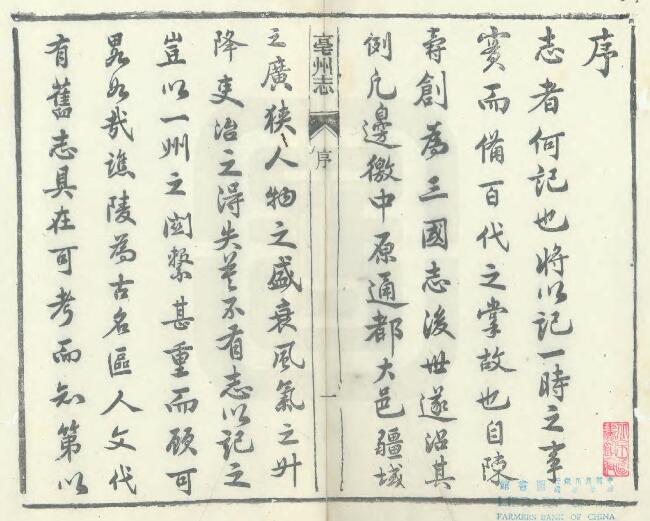 序
志者何記也將以記一時之事
實而備百代之掌故也自陳
壽創為三國志後世遂沿其
例凡邊徼中原通都大邑疆域
亳州志
序
一
之廣狹人物之盛衰風氣之升
降吏治之得失莫不有志以記之
豈以一州之關繫甚重而顧可
畧如哉譙陵為古名區人文代
有舊志具在可考而知第以
圖書館
FARMERS BANK OF CHINA